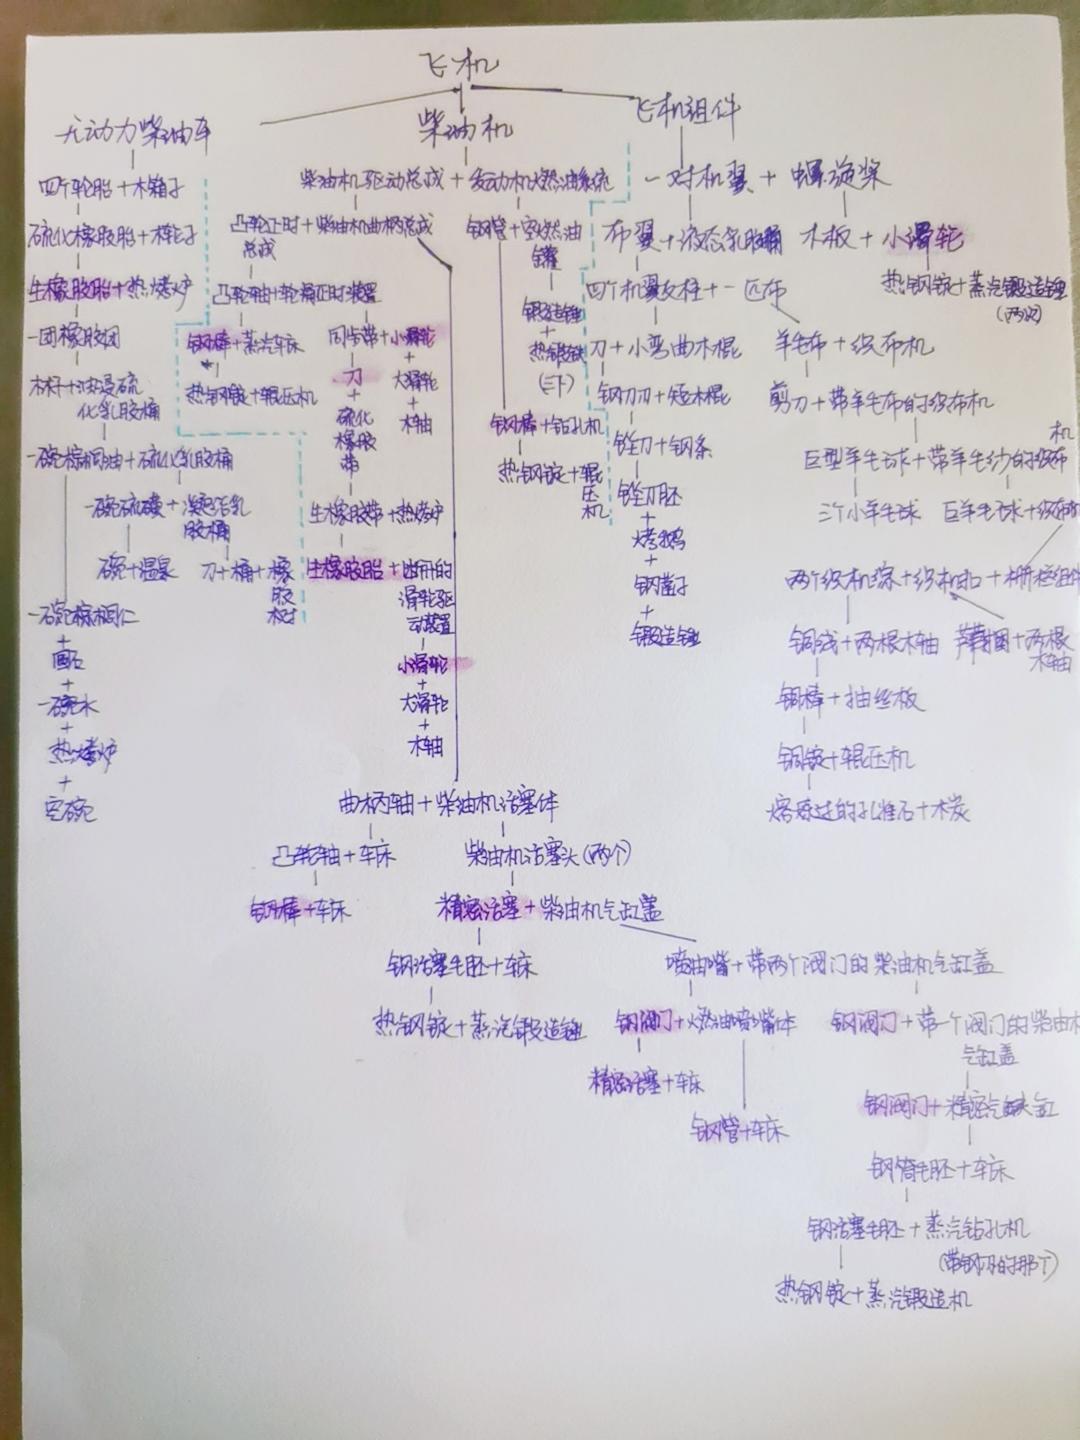 飞机
无动力柴油车
柴油机
飞机组件
四个轮胎+木箱子
柴油机驱动总成+发动机燃油系统
一对机翼+螺旋桨
硫化橡胶胎+木轮子
凸轮正时+柴油机曲柄总成
总成
钢管+空燃油
罐
布翼+液态乳胶桶
木板+小滑轮
热钢锭+蒸汽锻造锤
(两次)
生橡胶胎+热烤炉
凸轮轴+轮轴正时装置
锻造锤
+
热锻铁
(三下)
四个机翼支柱+一匹布
一团橡胶团
钢棒+蒸汽车床
同步带+小滑轮
刀+小弯曲木棍
羊毛布+织布机
木杆+油浸硫
化乳胶桶
热钢锭+辊压机
刀
+
硫化
橡胶
带
+
大滑轮
+
木轴
钢刀刃+短木棍
剪刀+带羊毛布的织布机
钢棒+钻孔机
锉刀+钢条
一碗棕榈油+硫化乳胶桶
热钢锭+辊
压
机
巨型羊毛球+带羊毛纱的织布
机
一碗硫磺+凝起活乳
胶桶
生橡胶带+热烤炉
锉刀胚
+
烤鹅
+
钢凿子
+
锻造锤
三个小羊毛球
巨羊毛球+织布机
碗+温泉
刀+桶+橡
胶
树
生橡胶胎+断开的
滑轮驱
动装置
小滑轮
+
大滑轮
+
木轴
两个织机综+织机扣+栅栏组件
一碗棕榈仁
+
圆石
+
一碗水
+
热烤炉
+
空碗
铜线+两根木轴
芦苇捆+两根
木轴
铜棒+抽丝板
铜锭+辊压机
熔炼过的孔雀石+木炭
曲柄轴+柴油机活塞体
凸轮轴+车床
柴油机活塞头(两个)
钢棒+车床
精密活塞+柴油机气缸盖
钢活塞毛胚+车床
喷油嘴+带两个阀门的柴油机气缸盖
热钢锭+蒸汽锻造锤
钢阀门+燃油喷嘴体
钢阀门+带一个阀门的柴油机
气缸盖
精密活塞+车床
钢管+车床
钢阀门+精密汽缸
钢筒毛胚+车床
钢活塞毛胚+蒸汽钻孔机
(带钢刀的那个)
热钢锭+蒸汽锻造机